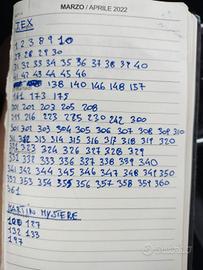 MARZO / APRILE 2022
TEX
1 2 3 8 9 10
27 28 29 30
31 32 33 34 35 36 37 38 39 40
41 42 43 44 45 46
138 140 146 148 157
173 175
201 202 203 205 208
216 223 235 230 242 300
301 302 303 304 305 306 307 308 309 310
311 312 313 314 315 316 317 318 319 320
322 323 324 325 326 327 328 329
331 332 333 335 336 337 338 339 340
341 342 343 344 345 346 347 348 349 350
352 353 354 355 356 357 358 359 360
361
MARTIN MYSTERE
100 127
132 133
197